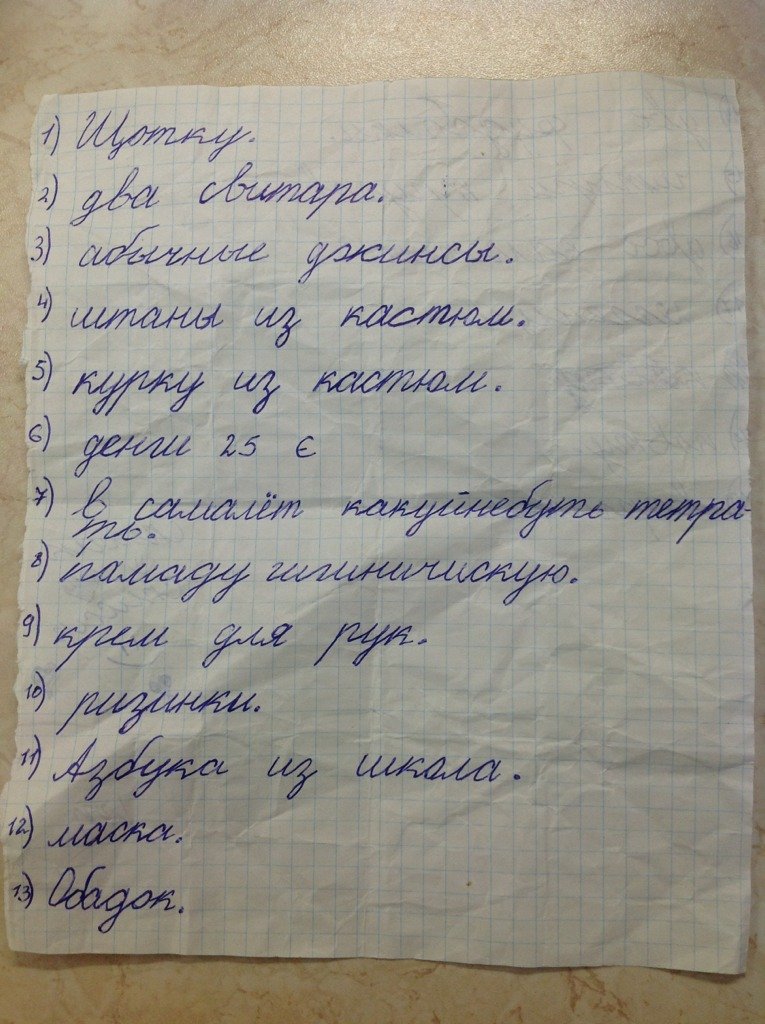 1) Щотку.
2) два свитара.
3) абычные джинсы.
4) штаны из кастюм.
5) курку из кастюм.
6) денги 25 €
7) в самалёт какуйнебуть тетра-
ть.
8) памаду гигиничискую.
9) крем для рук.
10) ризинки.
11) Азбука из школа.
12) маска.
13) Обадок.